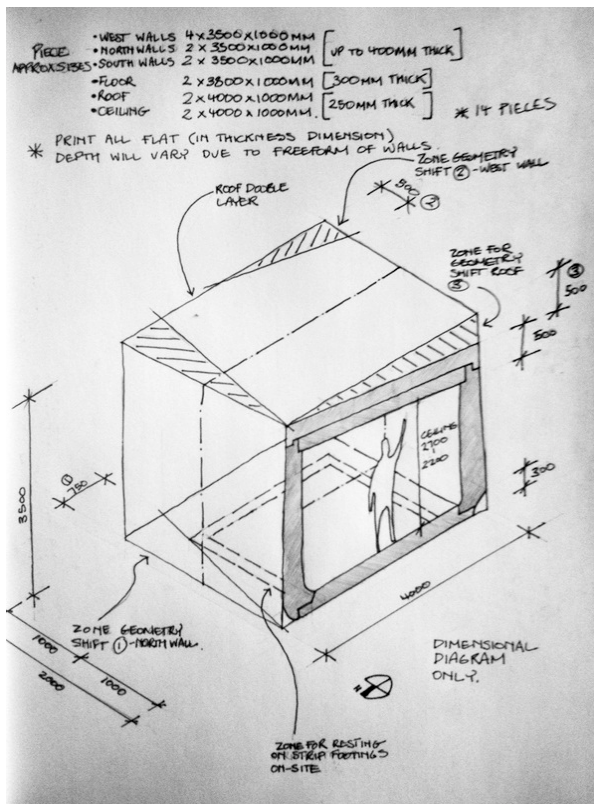 PIECE
APPROX SIZES
• WEST WALLS 4 x 3500 x 1000MM
• NORTH WALLS 2 x 3500 x 1000MM
• SOUTH WALLS 2 x 3500 x 1000MM
[UP TO 400MM THICK]
• FLOOR 2 x 3800 x 1000MM [300MM THICK]
• ROOF 2 x 4000 x 1000MM
• CEILING 2 x 4000 x 1000MM.
[250MM THICK]
* 14 PIECES
* PRINT ALL FLAT (IN THICKNESS DIMENSION)
DEPTH WILL VARY DUE TO FREEFORM OF WALLS.
ZONE GEOMETRY
SHIFT ② - WEST WALL
500
②
ROOF DOUBLE
LAYER
ZONE FOR
GEOMETRY
SHIFT ROOF
③
③
500
500
CEILING
2700
-
2200
300
3500
①
750
4000
ZONE GEOMETRY
SHIFT ① - NORTH WALL.
1000
1000
2000
DIMENSIONAL
DIAGRAM
ONLY.
N
ZONE FOR RESTING
ON STRIP FOOTINGS
ON-SITE